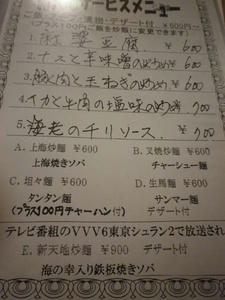 サービスメニュー
漬物・デザート付 ￥600～
(プラス100円 飯を炒飯に変更できます)
1. 麻婆豆腐 ￥600
2. ナスと辛味噌の炒め ￥600
3. 豚肉と玉ねぎの炒め ￥600
4. イカと牛肉の塩味の炒め 700
5. 海老のチリソース. ￥700
A. 上海炒麺 ￥600
上海焼きソバ
B. 叉焼炒麺 ￥600
チャーシュー麺
C. 坦々麺 ￥600
タンタン麺
(プラス100円チャーハン付)
D. 生馬麺 ￥600
サンマー麺
デザート付
テレビ番組のVVV6東京シュラン2で放送され
E. 新天地炒麺 ￥900 デザート付
海の幸入り鉄板焼きソバ